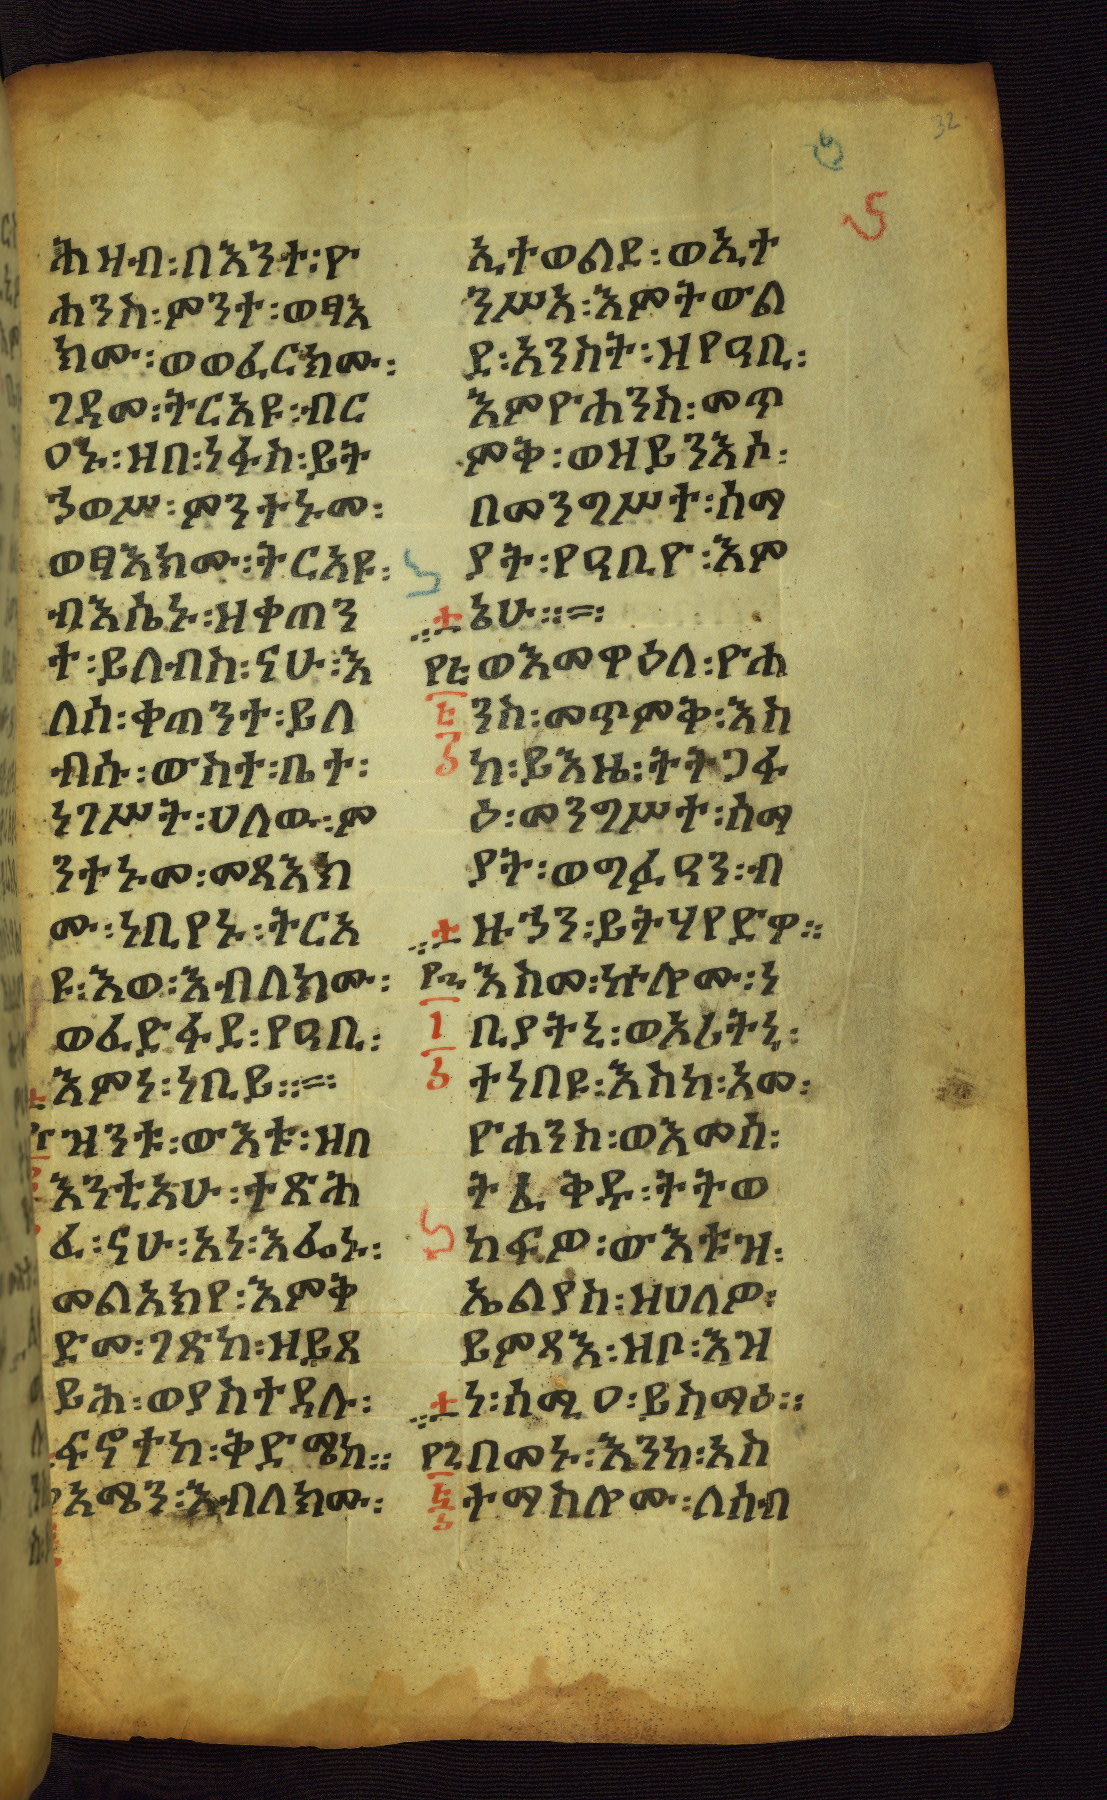 32
ሕዝብ፡በእንተ፡ዮ
ሐንስ፡ምንተ፡ወፃእ
ክሙ፡ወወፈርክሙ፡
ገዳመ፡ትርአዩ፡ብር
ዐኑ፡ዘበ፡ነፋስ፡ይት
ኃወሥ፡ምንተኑመ፡
ወፃእክሙ፡ትርአዩ፡
ብእሴኑ፡ዘቀጠን
ተ፡ይለብስ፡ናሁ፡እ
ለሰ፡ቀጠንተ፡ይለ
ብሱ፡ውስተ፡ቤተ፡
ነገሥት፡ሀለው፡ም
ንተኑመ፡መጻእክ
ሙ፡ነቢየኑ፡ትርአ
ዩ፡እወ፡እብለክሙ፡
ወፈድፋደ፡የዓቢ፡
እምነ፡ነቢይ።=፡
ዝንቱ፡ውእቱ፡ዘበ
እንቲአሁ፡ተጽሕ
ፈ፡ናሁ፡አነ፡እፌኑ፡
መልአክየ፡እምቅ
ድመ፡ገጽከ፡ዘይጸ
ይሕ፡ወያስተዳሉ፡
ፍኖተከ፡ቅድሜከ።
አሜን፡እብለክሙ፡
ኢተወልደ፡ወኢተ
ንሥአ፡እምትውል
ደ፡አንስት፡ዘየዓቢ፡
እምዮሐንስ፡መጥ
ምቅ፡ወዘይንእሶ፡
በመንግሥተ፡ሰማ
ያት፡የዓቢዮ፡እም
ኔሁ።=፡
ወእመዋዕለ፡ዮሐ
ንስ፡መጥምቅ፡እስ
ከ፡ይእዜ፡ትትጋፋ
ዕ፡መንግሥተ፡ሰማ
ያት፡ወግፉዓን፡ብ
ዙኃን፡ይትሃየድዋ።
እስመ፡ኵሎሙ፡ነ
ቢያትኒ፡ወኦሪትኒ፡
ተነበዩ፡እስከ፡አመ፡
ዮሐንስ፡ወእመሰ፡
ትፈቅዱ፡ትትወ
ከፍዎ፡ውእቱዝ፡
ኤልያስ፡ዘሀለዎ፡
ይምጻእ፡ዘቦ፡እዝ
ነ፡ሰሚዐ፡ይስማዕ።
በመኑ፡እንከ፡አስ
ተማስሎሙ፡ለሰብ